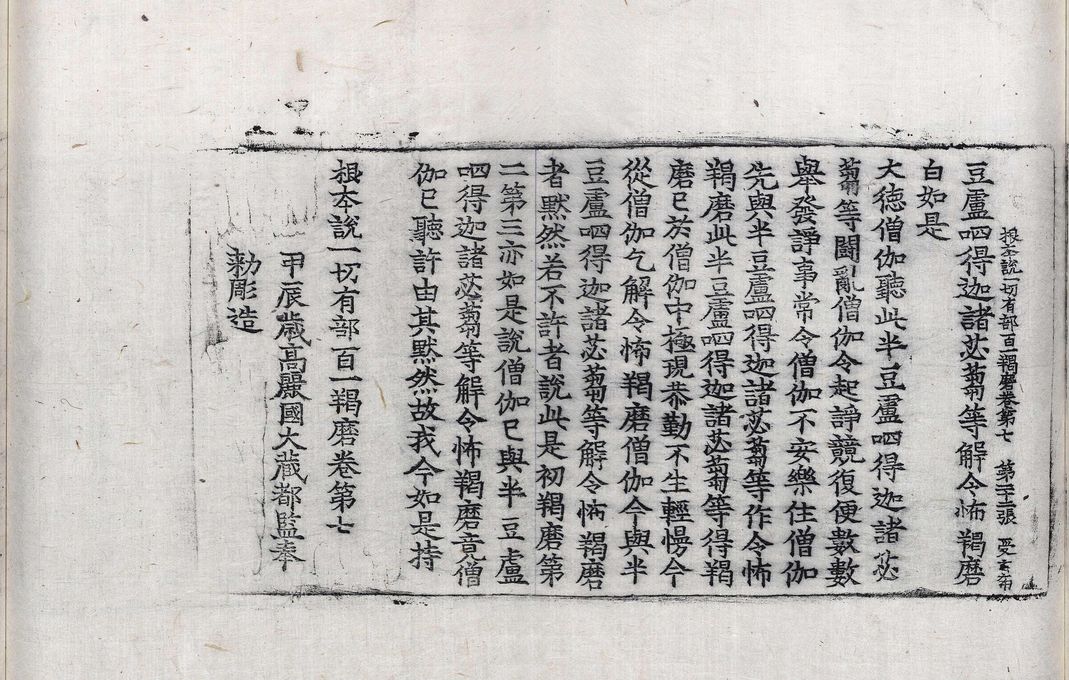 根本說一切有部百一羯磨卷第七 第二十二張 受
豆盧呬得迦諸苾蒭等解令怖羯磨
白如是
大德僧伽聽此半豆盧呬得迦諸苾
蒭等鬪亂僧伽令起諍競復便數數
舉發諍事常令僧伽不安樂住僧伽
先與半豆盧呬得迦諸苾蒭等作令怖
羯磨此半豆盧呬得迦諸苾蒭等得羯
磨已於僧伽中極現恭勤不生輕慢今
從僧伽乞解令怖羯磨僧伽今與半
豆盧呬得迦諸苾蒭等解令怖羯磨
者默然若不許者說此是初羯磨第
二第三亦如是說僧伽已與半豆盧
呬得迦諸苾蒭等解令怖羯磨竟僧
伽已聽許由其默然故我今如是持
根本說一切有部百一羯磨卷第七
甲辰歲高麗國大藏都監奉
勅彫造